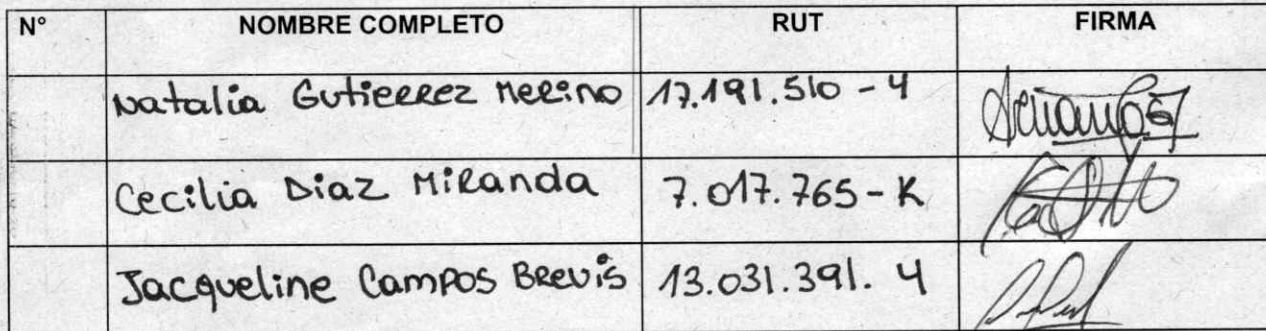 N° NOMBRE COMPLETO RUT FIRMA
Natalia Gutierrez Merino 17.191.510-4
Cecilia Diaz Miranda 7.017.765-K
Jacqueline Campos Brevis 13.031.391.4